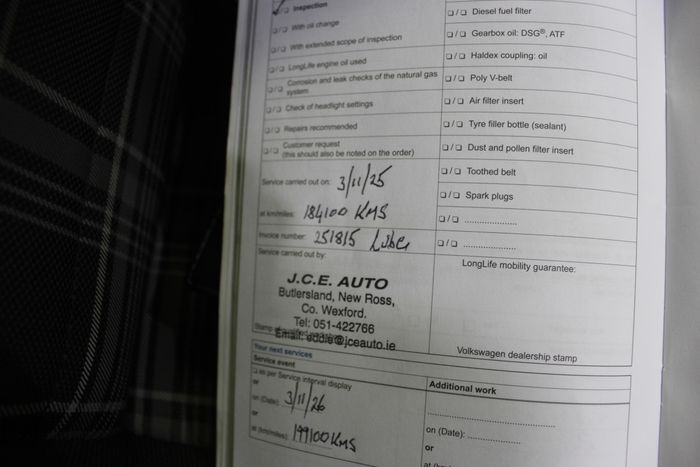 Inspection
With oil change
With extended scope of inspection
LongLife engine oil used
Corrosion and leak checks of the natural gas
system
Check of headlight settings
Repairs recommended
Customer request
(this should also be noted on the order)
Service carried out on: 3/11/25
at km/miles: 184100 KMS
Invoice number: 251815
Service carried out by:
J.C.E. AUTO
Butlersland, New Ross,
Co. Wexford.
Tel: 051-422766
Email: eddie@jceauto.ie
Stamp of
Your next services
Service event
as per Service interval display
or
on (Date): 3/11/26
or
at (km/miles): 199100 KMS
Diesel fuel filter
Gearbox oil: DSG®, ATF
Haldex coupling: oil
Poly V-belt
Air filter insert
Tyre filler bottle (sealant)
Dust and pollen filter insert
Toothed belt
Spark plugs
LongLife mobility guarantee:
Volkswagen dealership stamp
Additional work
on (Date):
or